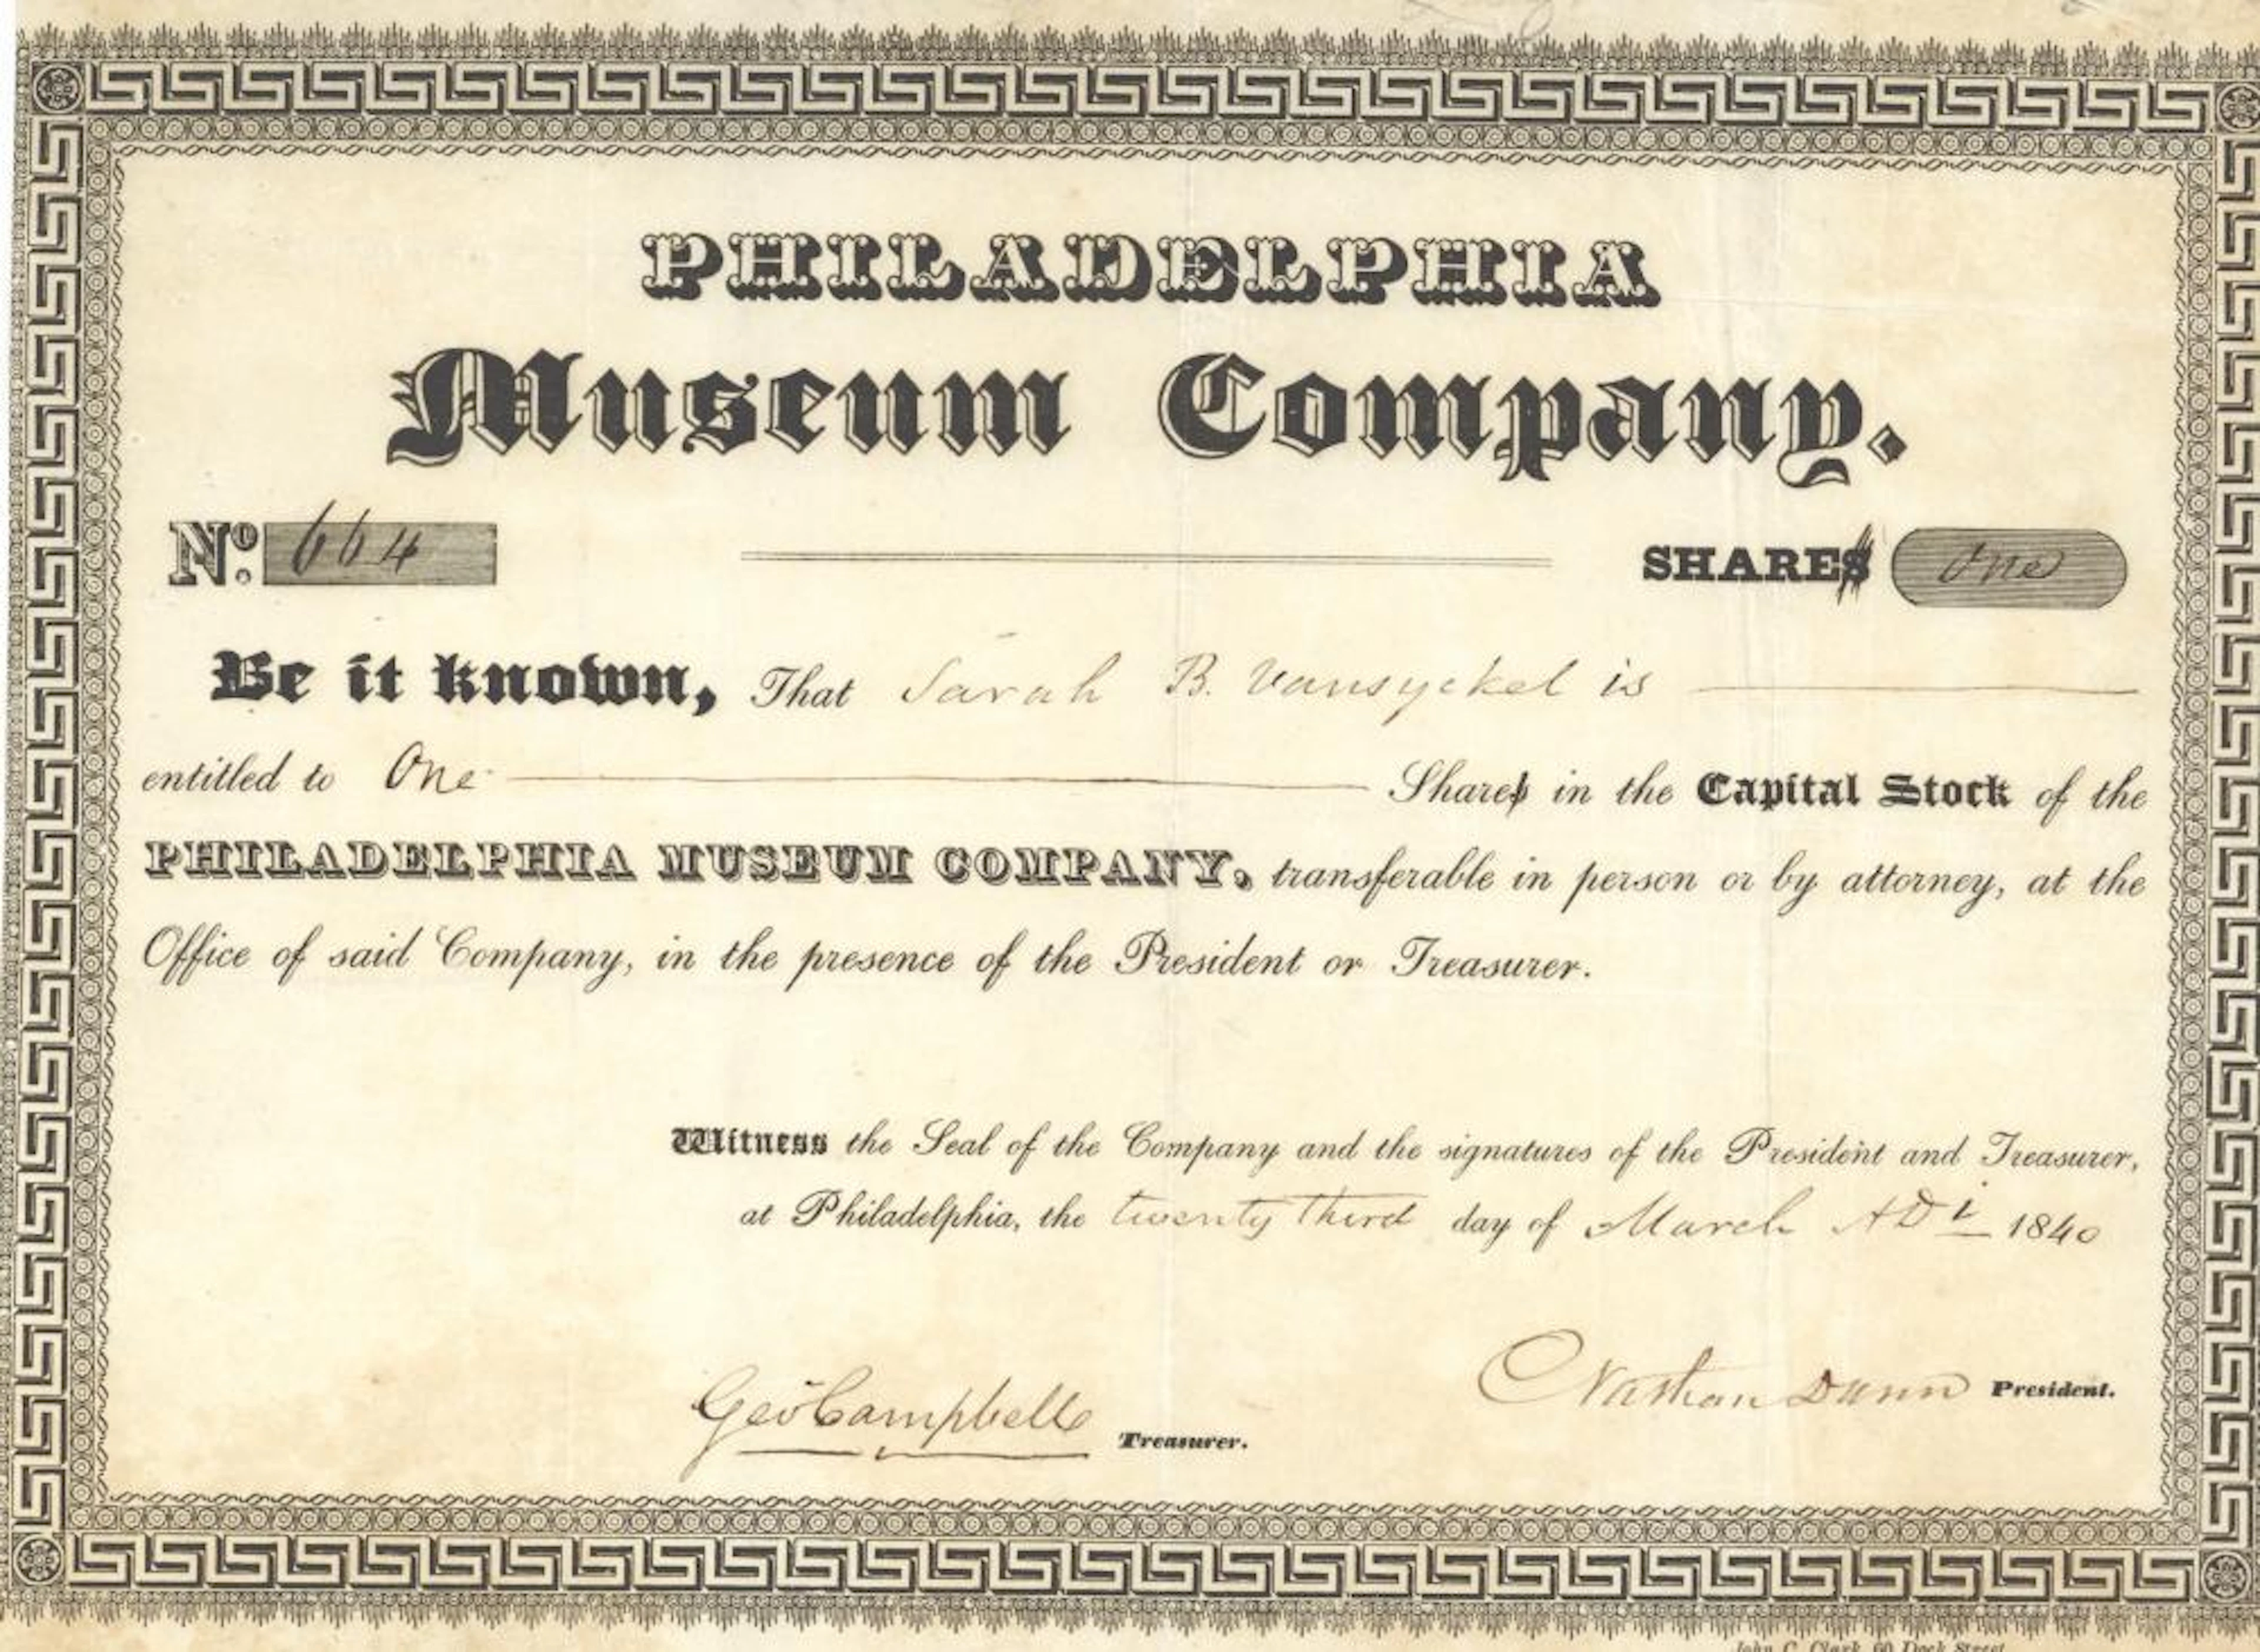 PHILADELPHIA
Museum Company.
No. 664 SHARES One
Be it known, That Sarah B. Vansyckel is
entitled to One Shares in the Capital Stock of the
PHILADELPHIA MUSEUM COMPANY, transferable in person or by attorney, at the
Office of said Company, in the presence of the President or Treasurer.
Witness the Seal of the Company and the signatures of the President and Treasurer,
at Philadelphia, the twenty third day of March ADi 1840
Nathan Dunn President.
Geo Campbell Treasurer.
John C. Clark, 60 Dock Street